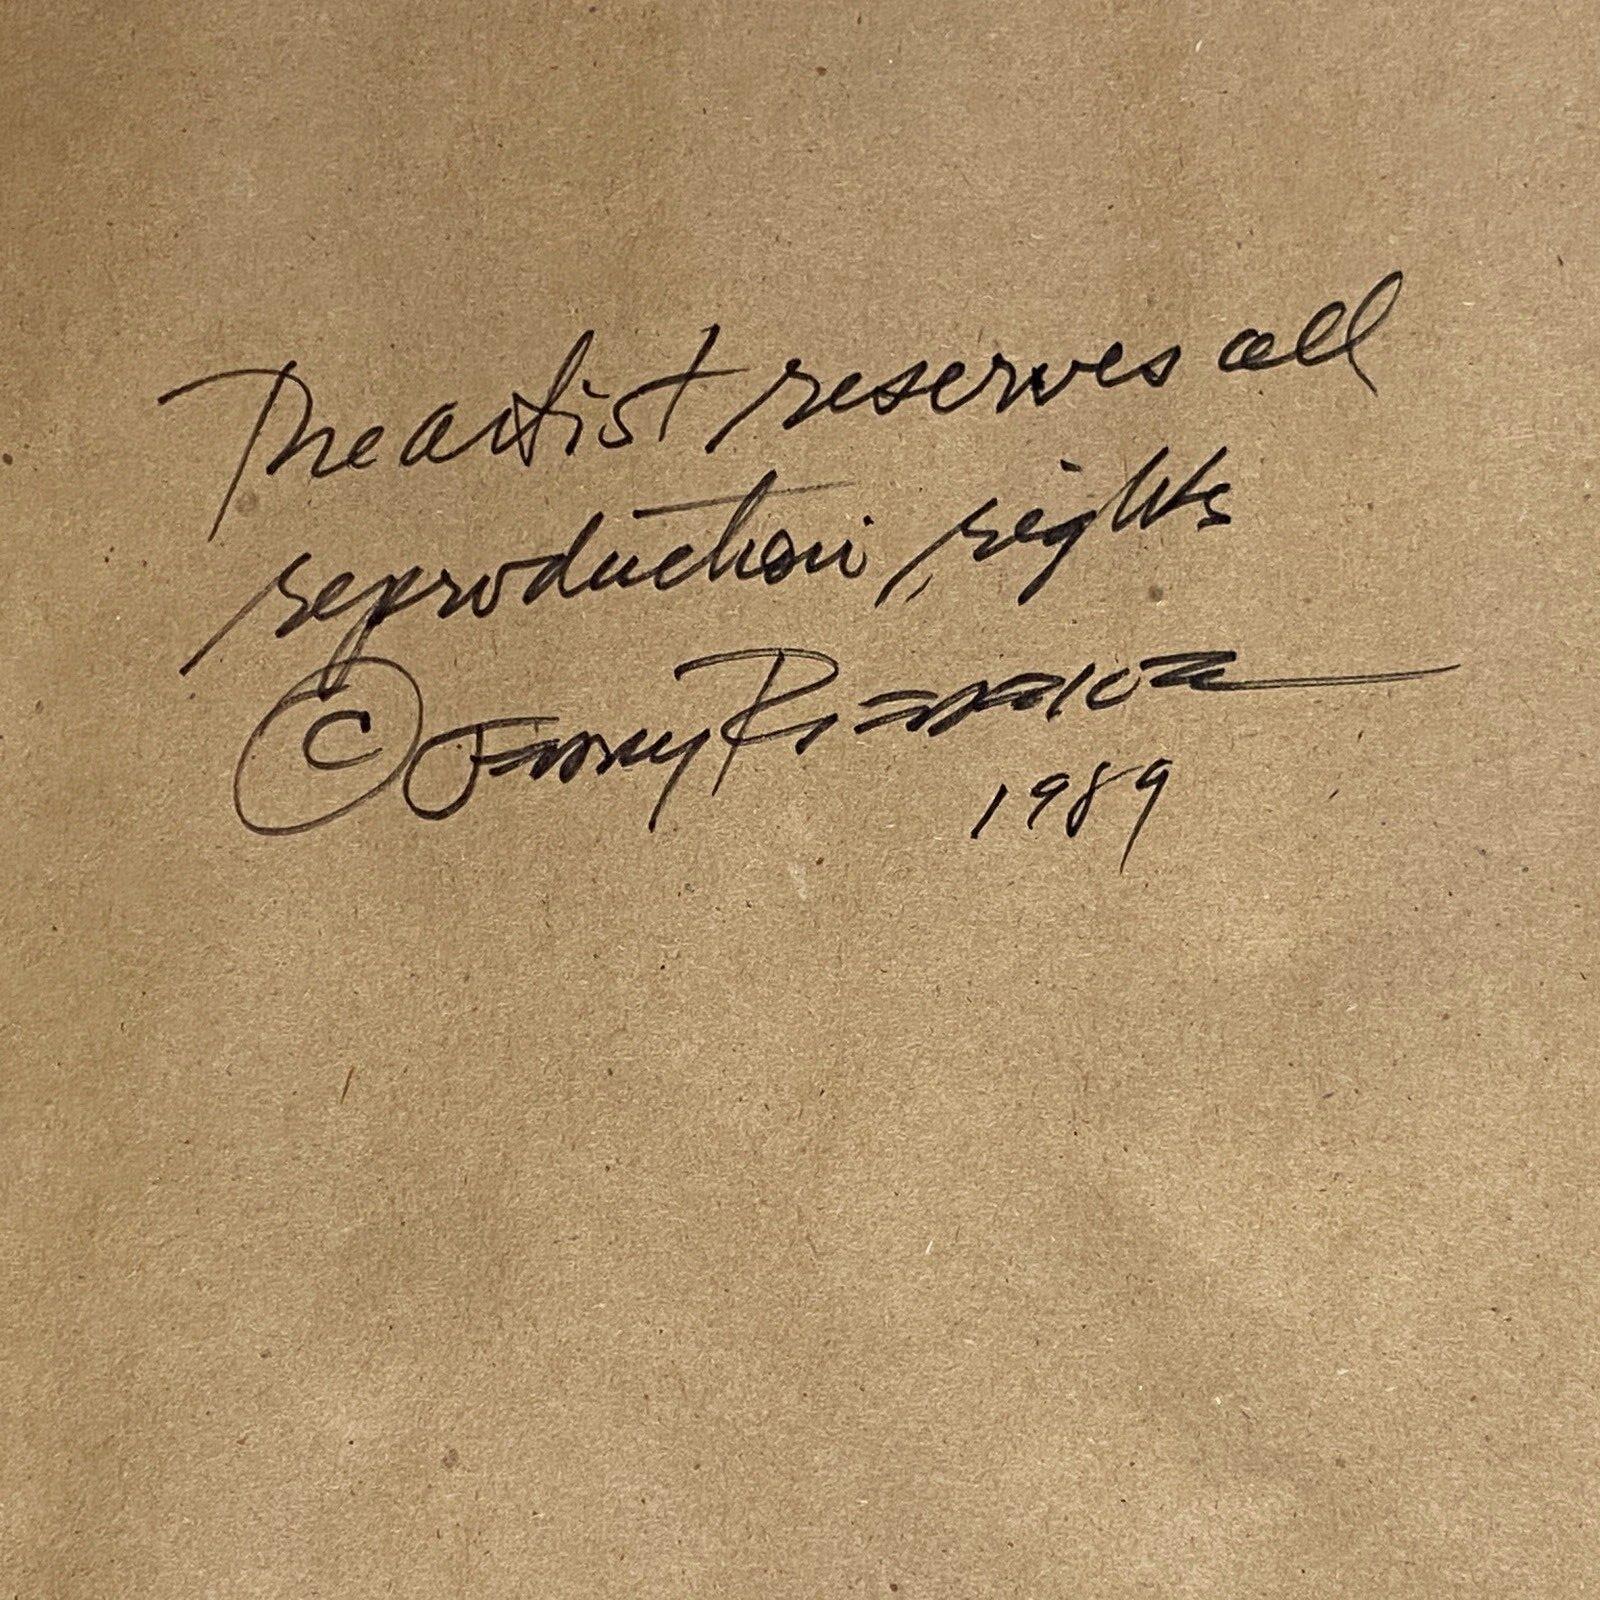 The artist reserves all
reproduction rights
©
1989